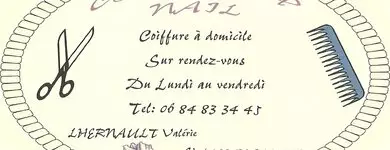 NAIL
Coiffure à domicile
Sur rendez-vous
Du Lundi au vendredi
Tel: 06 84 83 34 45
LHERNAULT Valérie